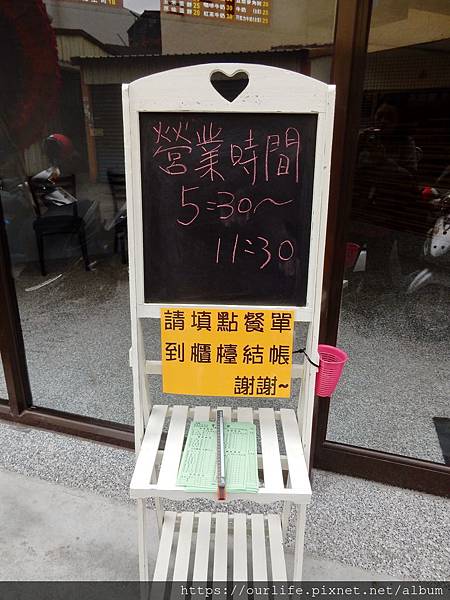 營業時間
5:30~
11:30
請填點餐單
到櫃檯結帳
謝謝~
https://ourlife.pixnet.net/album